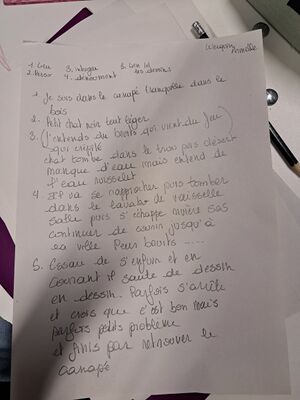 1. Lieu 3. intrigue 5. Son lol
2. Perso 4. dénouement les dessins
Armelle
1. Je suis dans le canapé (transposée dans le
bois
2. Petit chat noir tout léger
3. (J'entends du bruits qui vient du feu)
qui crépite
chat tombe dans le trou puis désert
manque d'eau mais entend de
l'eau ruisselet
4. Il va se rapprocher puis tomber
dans le lavabo de vaisselle
salle puis s'échappe
continuer de courir jusqu'à
sa ville Peur bruits .....
5. Essaie de s'enfuir et en
courant il saute de dessin
en dessin. Parfois s'arrête
et crois que c'est bon mais
parfois petits problème
et finis par retrouver le
canapé